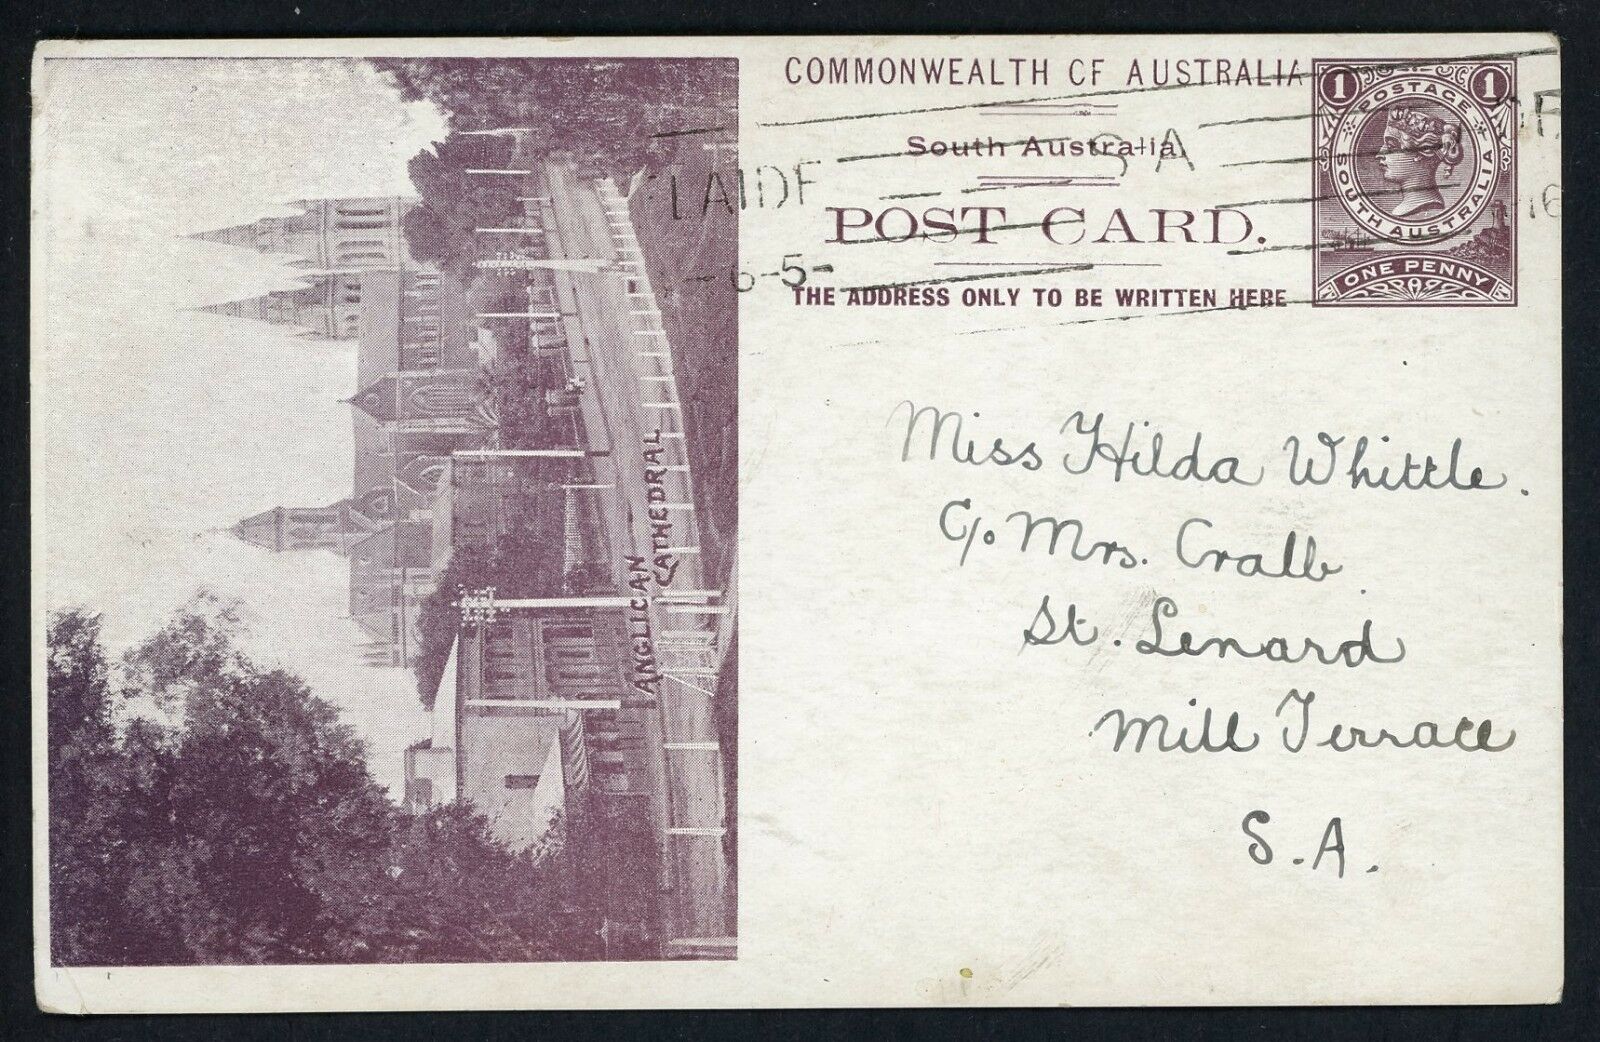 COMMONWEALTH OF AUSTRALIA
South Australia
POST CARD.
THE ADDRESS ONLY TO BE WRITTEN HERE
1 1
POSTAGE
SOUTH AUSTRALIA
ONE PENNY
LAIDE
S A
6-5-
16
ANGLICAN
CATHEDRAL
Miss Hilda Whittle.
C/o Mrs. Crabb
St. Lenard
Mill Terrace
S.A.